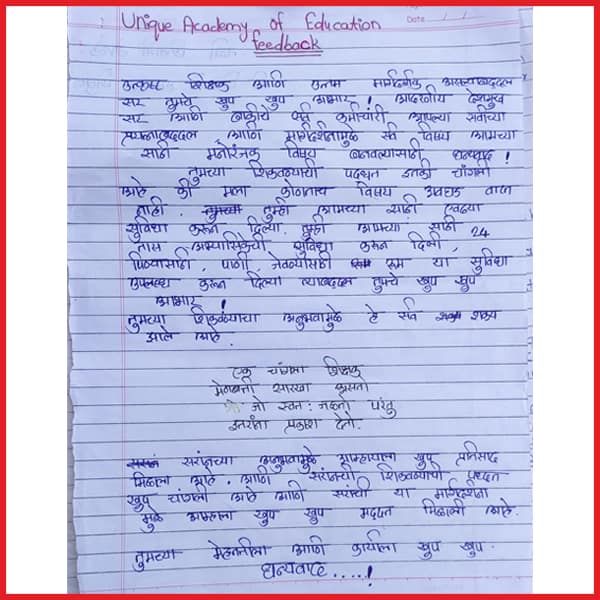 Unique Academy of Education
feedback
Date
उत्कृष्ट शिक्षक आणि उत्तम मार्गदर्शक असल्याबद्दल
सर तुमचे खुप खुप आभार ! आदरणीय देशमुख
सर आणि बाकीचे सर्व कर्मचारी आपल्या सर्वांच्या
प्रयत्नाबद्दल आणि मार्गदर्शनामुळे सर्व विषय आमच्या
साठी मनोरंजक विषय बनवल्यासाठी धन्यवाद !
तुमच्या शिकवण्याची पद्धत इतकी चांगली
आहे की मला कोणताच विषय अवघड वाटत
नाही . तुम्ही आमच्या साठी एवढ्या
सुविधा करून दिल्या. तुम्ही आमच्या साठी 24
तास अभ्यासिकेची सुविधा करून दिली,
पिण्यासाठी पाणी जेवण्यासाठी रूम या सुविधा
उपलब्ध करून दिल्या त्याबद्दल तुमचे खुप खुप
आभार !
तुमच्या शिकवण्याचा अनुभवामुळे हे सर्व शक्य
झाले आहे.
एक चांगला शिक्षक
मेणबत्ती सारखा असतो
जो स्वतः जळतो परंतु
इतरांना प्रकाश देतो.
सरांच्या अनुभवामुळे आम्हाला खुप प्रतिसाद
मिळाला आहे. आणि सरांची शिकवण्याची पध्दत
खुप चांगली आहे आणि सरांची या मार्गदर्शना
मुळे आम्हाला खुप खुप मदत मिळाली आहे.
तुमच्या मेहनतीला आणि कार्याला खुप खुप
धन्यवाद ....!